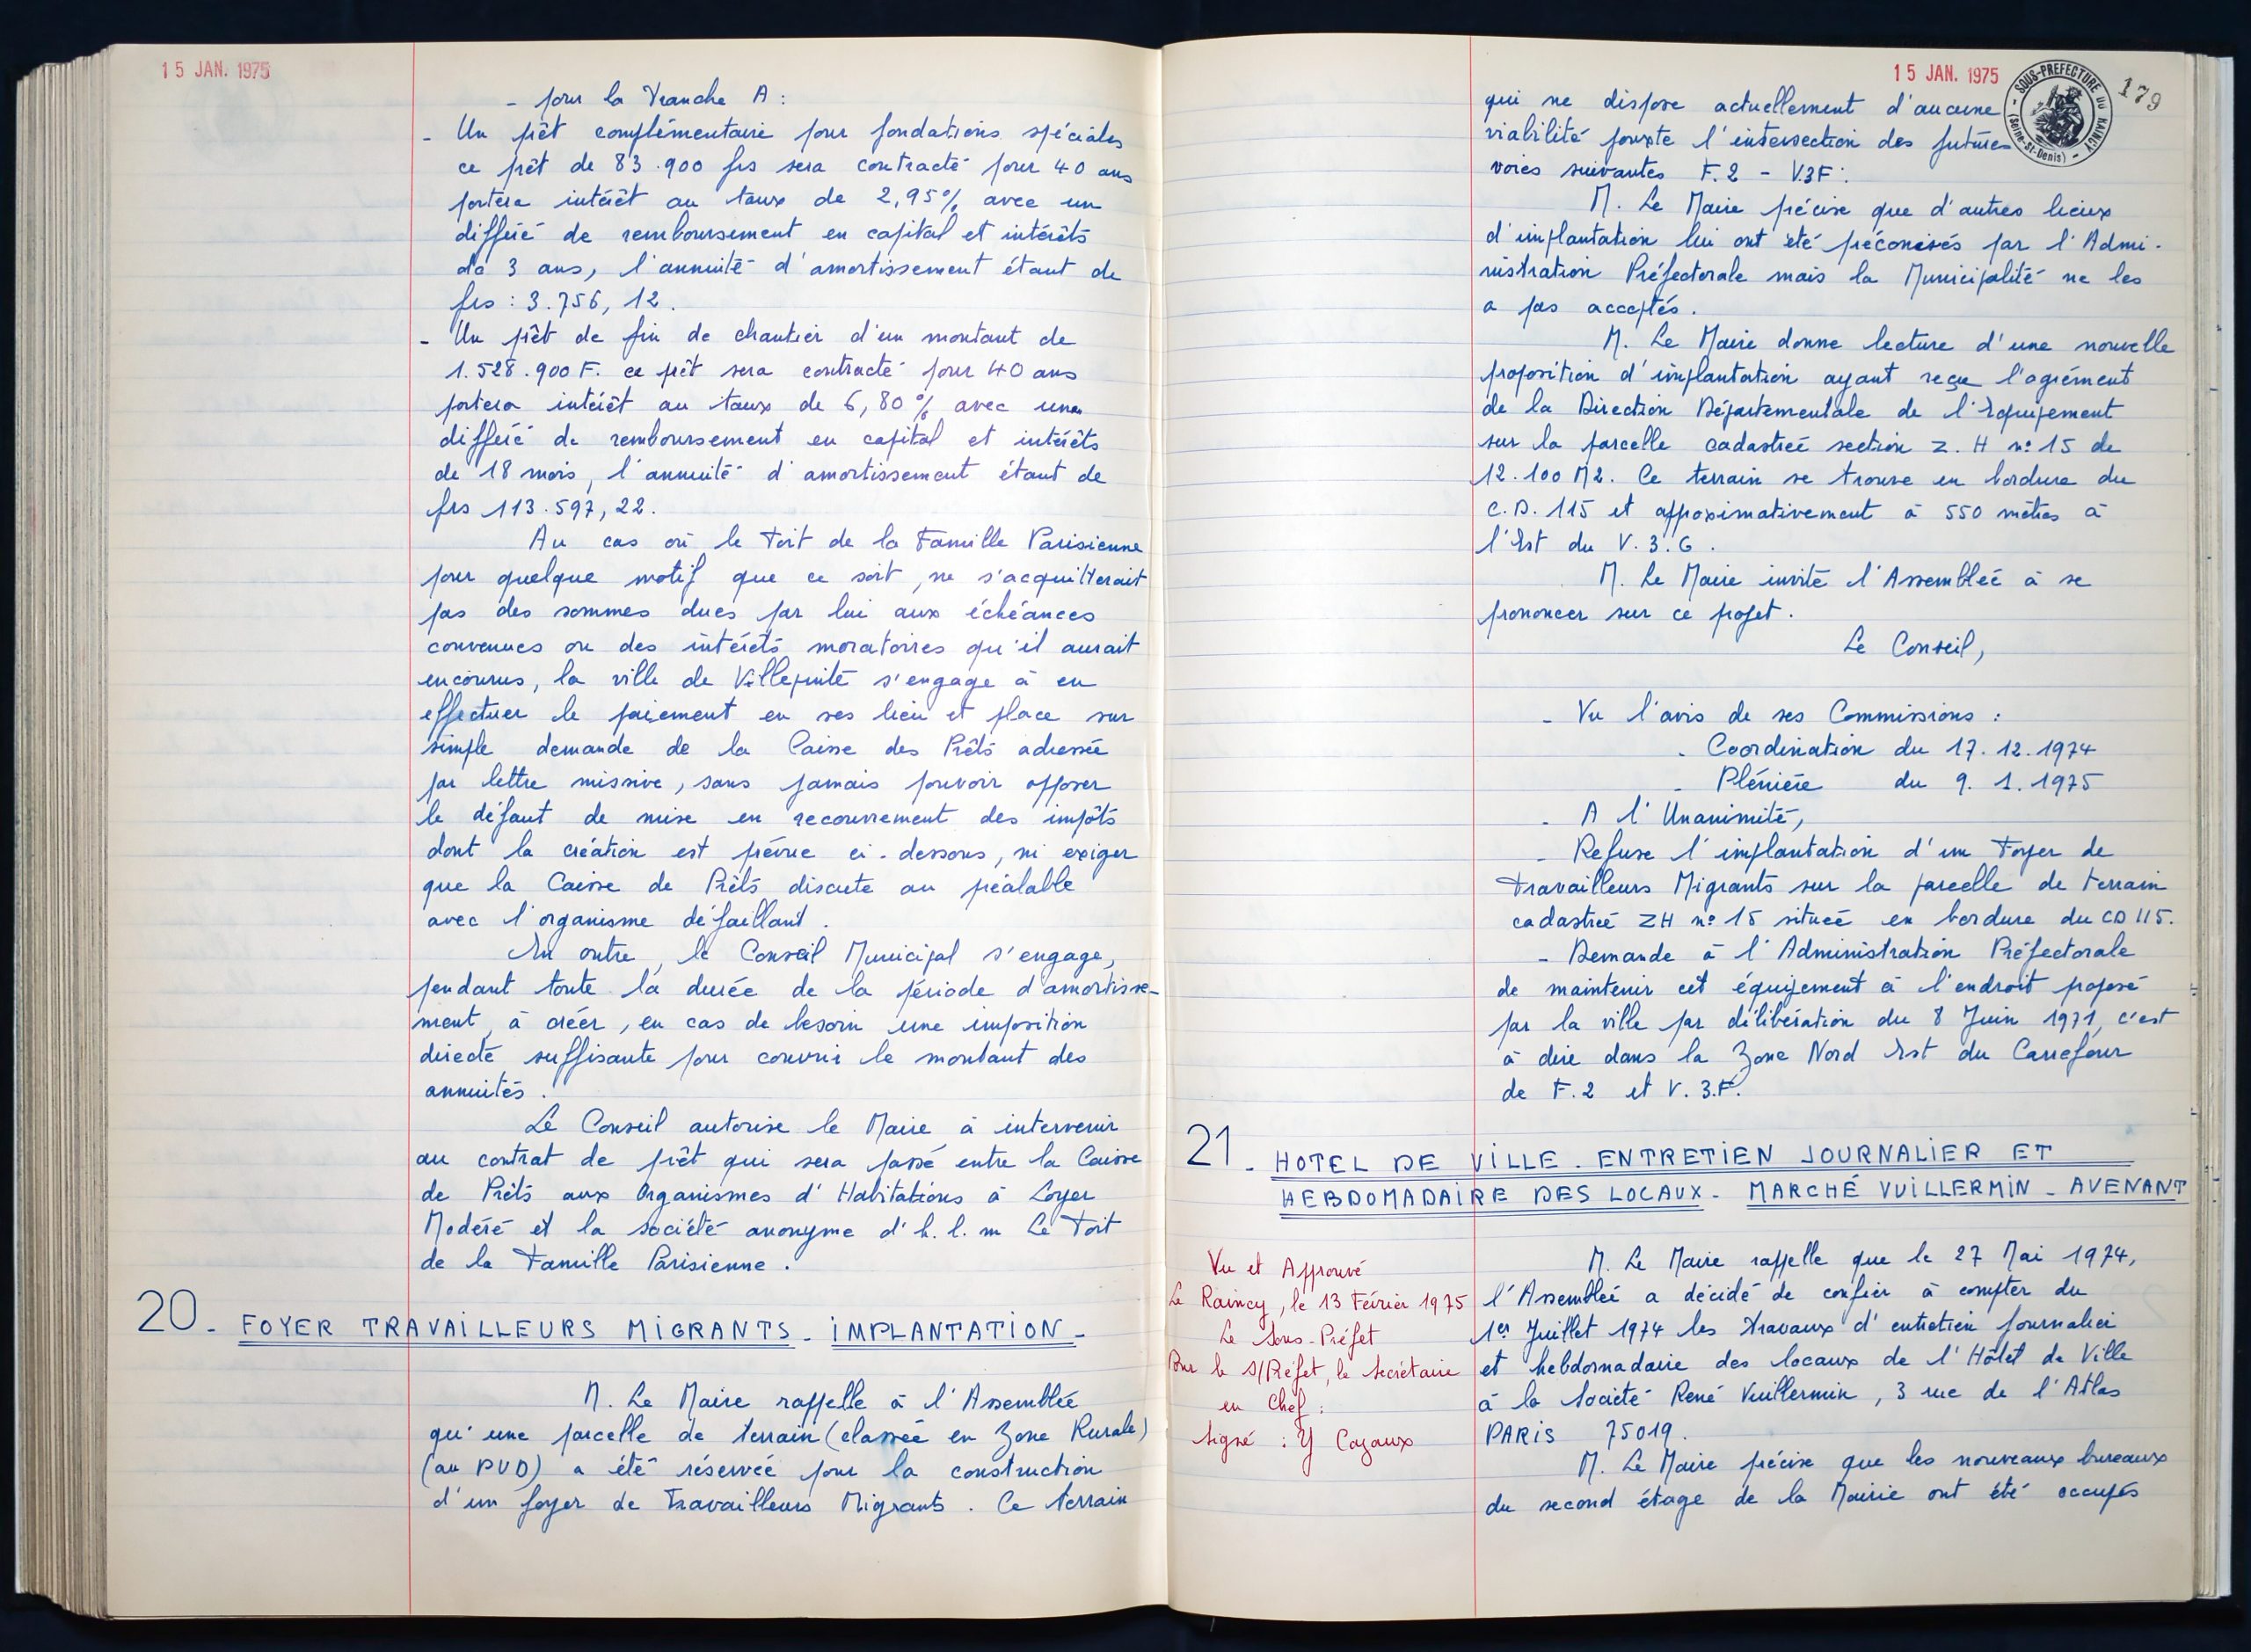 15 JAN. 1975
- pour la Tranche A :
- Un prêt complémentaire pour fondations spéciales
ce prêt de 83.900 frs sera contracté pour 40 ans
portera intérêt au taux de 2,95% avec un
différé de remboursement en capital et intérêts
de 3 ans, l'annuité d'amortissement étant de
frs : 3.756,12.
- Un prêt de fin de chantier d'un montant de
1.528.900 F. ce prêt sera contracté pour 40 ans
portera intérêt au taux de 6,80% avec un
différé de remboursement en capital et intérêts
de 18 mois, l'annuité d'amortissement étant de
frs 113.597,22.
Au cas où le Toit de la Famille Parisienne
pour quelque motif que ce soit, ne s'acquitterait
pas des sommes dues par lui aux échéances
convenues ou des intérêts moratoires qu'il aurait
encourus, la ville de Villepinte s'engage à en
effectuer le paiement en ses lieu et place sur
simple demande de la Caisse des Prêts adressée
par lettre missive, sans jamais pouvoir opposer
le défaut de mise en recouvrement des impôts
dont la création est prévue ci-dessous, ni exiger
que la Caisse de Prêts discute au préalable
avec l'organisme défaillant.
En outre, le Conseil Municipal s'engage,
pendant toute la durée de la période d'amortisse-
ment, à créer, en cas de besoin une imposition
directe suffisante pour couvrir le montant des
annuités.
Le Conseil autorise le Maire à intervenir
au contrat de prêt qui sera passé entre la Caisse
de Prêts aux Organismes d'Habitations à Loyer
Modéré et la société anonyme d'h.l.m Le Toit
de la Famille Parisienne.
20. FOYER TRAVAILLEURS MIGRANTS - IMPLANTATION -
M. Le Maire rappelle à l'Assemblée
qu'une parcelle de terrain (classée en Zone Rurale)
(au PUD) a été réservée pour la construction
d'un foyer de Travailleurs Migrants. Ce terrain
15 JAN. 1975
SOUS-PREFECTURE DU RAINCY
(Seine-St-Denis)
179
qui ne dispose actuellement d'aucune
viabilité jouxte l'intersection des futures
voies suivantes F.2 - V3F.
M. Le Maire précise que d'autres lieux
d'implantation lui ont été préconisés par l'Admi-
nistration Préfectorale mais la Municipalité ne les
a pas acceptés.
M. Le Maire donne lecture d'une nouvelle
proposition d'implantation ayant reçu l'agrément
de la Direction Départementale de l'Equipement
sur la parcelle cadastrée section Z.H n° 15 de
12.100 M2. Ce terrain se trouve en bordure du
C.D. 115 et approximativement à 550 mètres à
l'Est du V.3.G.
M. Le Maire invite l'Assemblée à se
prononcer sur ce projet.
Le Conseil,
- Vu l'avis de ses Commissions :
- Coordination du 17.12.1974
- Plénière du 9.1.1975
- A l'Unanimité,
- Refuse l'implantation d'un Foyer de
Travailleurs Migrants sur la parcelle de terrain
cadastrée ZH n° 15 située en bordure du CD 115.
- Demande à l'Administration Préfectorale
de maintenir cet équipement à l'endroit proposé
par la ville par délibération du 8 Juin 1971, c'est
à dire dans la Zone Nord Est du Carrefour
de F.2 et V.3.F.
21. HOTEL DE VILLE. ENTRETIEN JOURNALIER ET
HEBDOMADAIRE DES LOCAUX - MARCHÉ VUILLERMIN - AVENANT
Vu et Approuvé
Le Raincy, le 13 Février 1975
Le Sous-Préfet
Pour le S/Préfet, le Secrétaire
en Chef :
Signé : Y Cazaux
M. Le Maire rappelle que le 27 Mai 1974,
l'Assemblée a décidé de confier à compter du
1er Juillet 1974 les travaux d'entretien journalier
et hebdomadaire des locaux de l'Hôtel de Ville
à la Société René Vuillermin, 3 rue de l'Atlas
PARIS 75019.
M. Le Maire précise que les nouveaux bureaux
du second étage de la Mairie ont été occupés